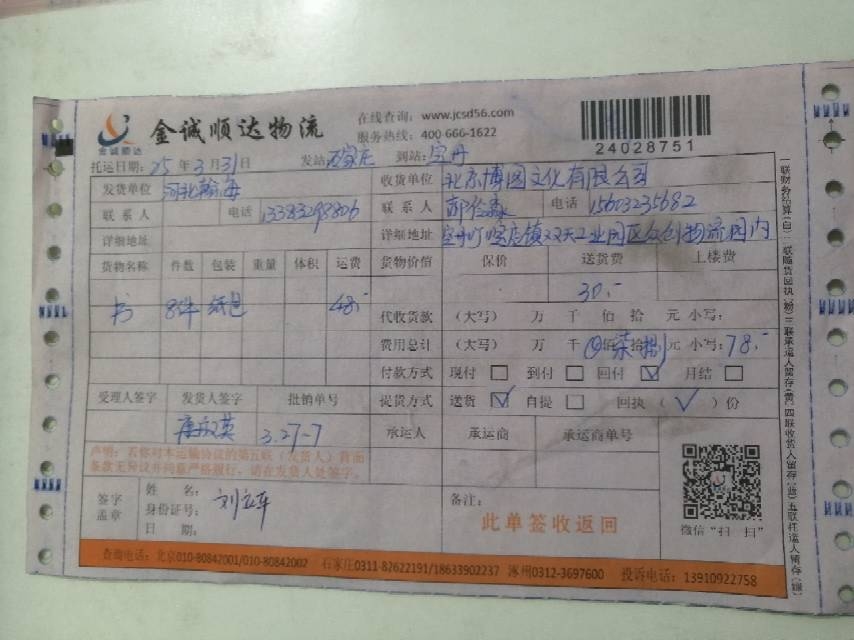 金诚顺达物流
金诚顺达
在线查询：www.jcsd56.com
服务热线：400-666-1622
24028751
托运日期：25年3月31日 发站 石家庄 到站：
发货单位 河北翰海 收货单位 北京博园文化有限公司
联系人 电话 13383298806 联系人 电话 15603235682
详细地址 详细地址 窑店镇双天工业园区众创物流园内
货物名称 件数 包装 重量 体积 运费 货物价值 保价 送货费 上楼费
书 8件 纸包 48.- 30.-
代收货款 （大写） 万 千 佰 拾 元 小写：
费用总计 （大写） 万 千 佰 柒拾捌元 小写：78.-
付款方式 现付 □ 到付 □ 回付 ☑ 月结 □
受理人签字 发货人签字 批销单号 提货方式 送货 ☑ 自提 □ 回执（✓）份
3.27-7 承运人 承运商 承运商单号
声明：若你对本运输协议的第五联（发货人）背面
条款无异议并同意严格履行，请在发货人处签字。
签字盖章 姓名： 刘立车
身份证号：
日期：
备注：
此单签收返回
微信“扫一扫”
查询电话：北京010-80842001/010-80842002 石家庄0311-82622191/18633902237 涿州0312-3697600 投诉电话：13910922758
一联财务结算（白）二联随货回执（粉）三联承运人留存（黄）四联收货人留存（蓝）五联托运人留存（绿）